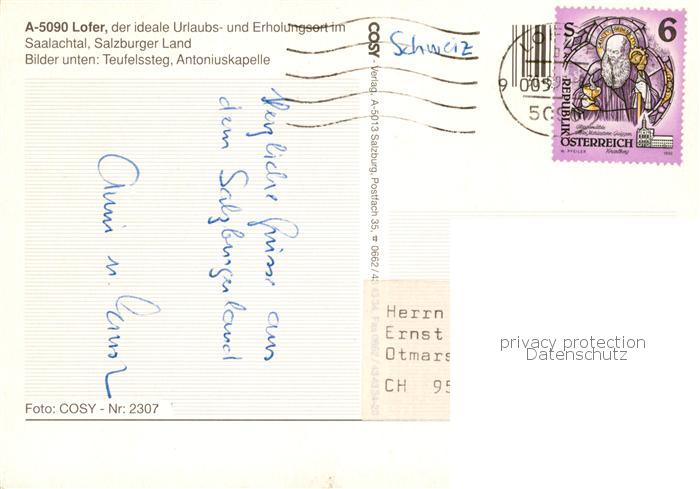 A-5090 Lofer, der ideale Urlaubs- und Erholungsort im
Saalachtal, Salzburger Land
Bilder unten: Teufelssteg, Antoniuskapelle
Schweiz
Herzliche Grüsse aus
dem Salzburgerland
Anni u.
COSY - Verlag, A-5013 Salzburg, Postfach 35, ¤ 0662/
S 6
REPUBLIK
ÖSTERREICH
W. PFEILER
Herrn
Ernst
Otmars
CH 95
privacy protection
Datenschutz
Foto: COSY - Nr: 2307